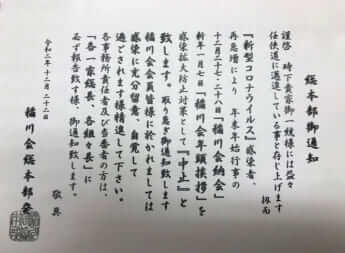 総本部御通知
謹啓　時下貴家御一統様には益々
任侠道に邁進している事と存じ上げます
扨而
『新型コロナウイルス』感染者、
再急増により　年末年始行事の
十二月二十七・二十八日「稲川会納会」
新年一月七日「稲川会年頭挨拶」を
感染拡大防止対策として『中止』と
致します。取り急ぎ御通知致します
稲川会会員皆様に於かれましては
感染に充分留意、自覚して
過ごされます様精進して下さい。
各事務所責任者及び当番者の方は、
「各一家総長、各組々長」に
必ず報告致す様、御通知致します。
敬具
令和二年十二月二十二日
稲川会総本部